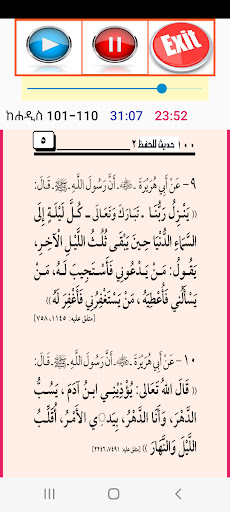 Exit
ከሐዲስ 101-110 31:07 23:52
١٠٠ حديث للحفظ ٢ ٥
٩- عَنْ أَبِي هُرَيْرَةَ - ﷺ - أَنَّ رَسُولَ اللَّهِ - ﷺ - قَالَ:
« يَنْزِلُ رَبُّنَا - تَبَارَكَ وَتَعَالَى - كُلَّ لَيْلَةٍ إِلَى
السَّمَاءِ الدُّنْيَا حِينَ يَبْقَى ثُلُثُ اللَّيْلِ الْآخِرِ،
يَقُولُ: مَنْ يَدْعُونِي فَأَسْتَجِيبَ لَهُ، مَنْ
يَسْأَلُنِي فَأُعْطِيَهُ ، مَنْ يَسْتَغْفِرُنِي فَأَغْفِرَ لَهُ »
(متفق عليه: ١١٤٥، ٧٥٨)
١٠- عَنْ أَبِي هُرَيْرَةَ - - أَنَّ رَسُولَ اللَّهِ - ﷺ - قَالَ:
« قَالَ اللَّهُ تَعَالَى: يُؤْذِينِي ابنُ آدَمَ ، يَسُبُّ
الدَّهْرَ، وَأَنَا الدَّهْرُ، بِيَدِي الْأَمْرُ، أُقَلِّبُ
اللَّيْلَ وَالنَّهَارَ » (متفق عليه: ٧٤٩١، ٢٢٤٦)